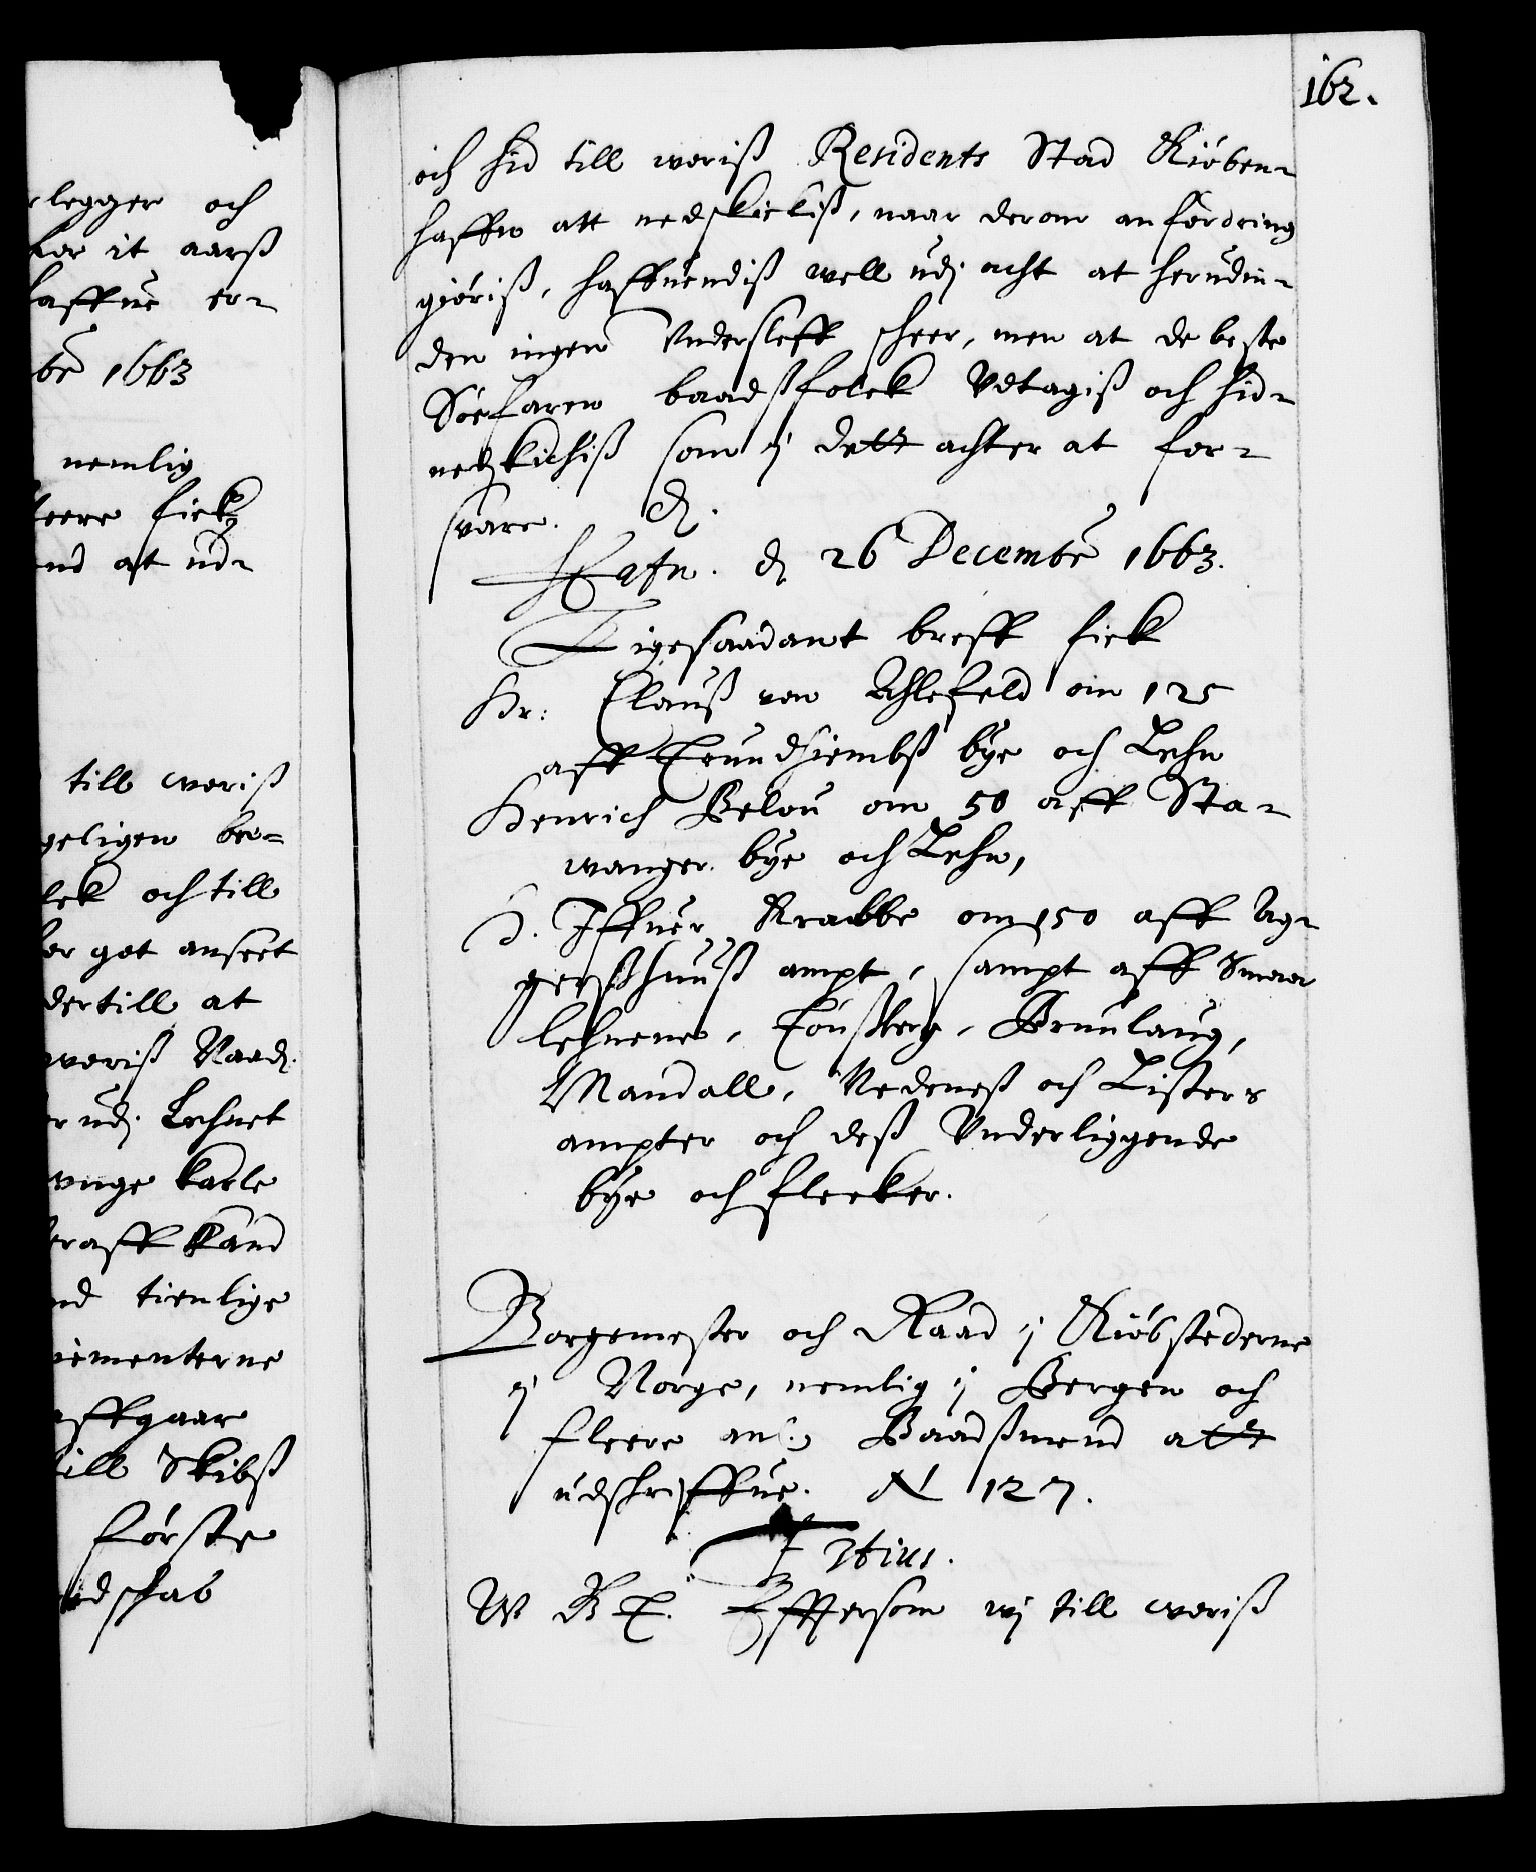 162.
och hid till woriß Residents Stad Kiöben-
haffn att nedskickiß, naar derom anfordring
giöriß, haffuendiß well udj acht at herudin-
den ingen Vndersleff scheer, men at de beste
Söefaren baadßfolck Vdtagiß och hid-
nedskichiß som ij dett achter at for-
svare. D.
Hafn. d 26 Decembr 1663.
Ligesaadant breff fick
Hr: Clauß von Ahlefeld om 125
aff Trundhiembß bye och Lehn
Henrich Below om 50 aff Sta-
wanger bye och Lehn,
H. Iffuer Krabbe om 150 aff Ag-
gerßhuuß ampt, sampt aff Smaa
lehnene, Tönßberg, Brunlaug,
Mandall, Nedeneß och Listers
ampter och deß Vnderliggende
bye och flecker.
Borgemester och Raad ij Kiöbstederne
ij Norge, nemlig ij Bergen och
fleere an: Baadßmend att
udschriffue. N 127.
W G T. Effersom wj till woriß
rlegger och
for it aarß
haffue er-
br 1663
nemlig
fleere fick
end at ud-
till woriß
geligen be-
lck och till
or got anseet
dertill at
woriß Naad.
r udj Lehnet
vnge karle
eraff kand
nd tienlige
iementerne
affgaar
till Skibß
förste
dschab